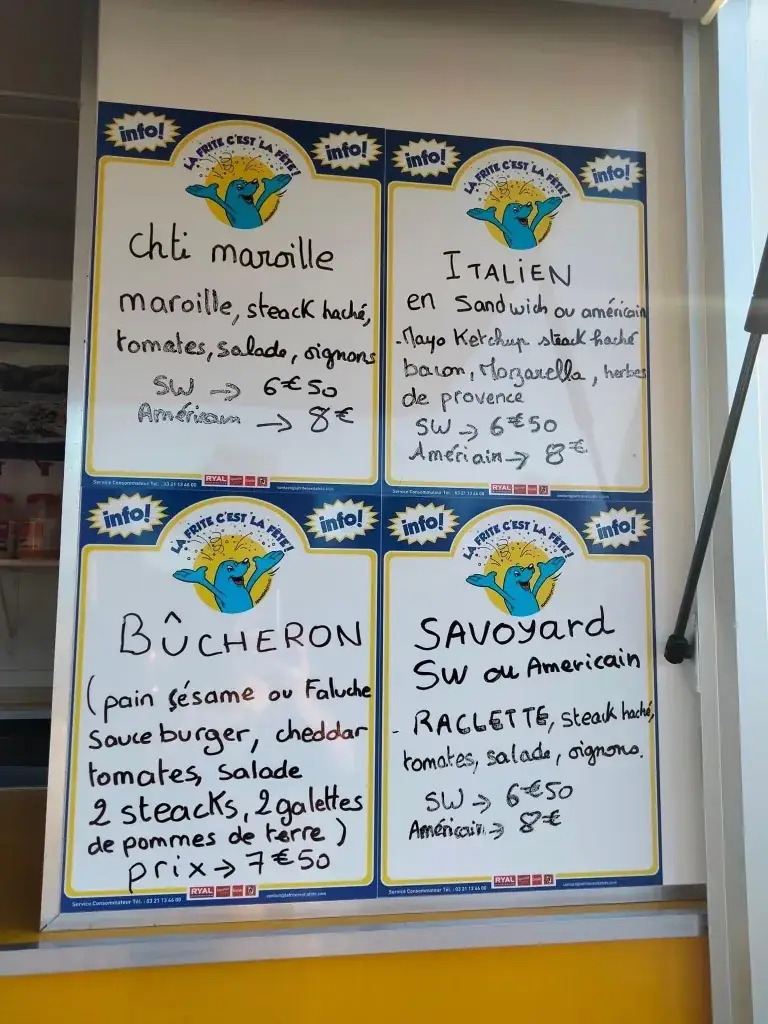 info!
LA FRITE C'EST LA FÊTE!
info!
chti maroille
maroille, steack haché,
tomates, salade, oignons
SW → 6€50
Américain → 8€
Service Consommateur Tél. : 03 21 13 46 00
RYAL
info!
LA FRITE C'EST LA FÊTE!
info!
ITALIEN
en Sandwich ou américain
-Mayo Ketchup steack haché
bacon, Mozzarella, herbes
de provence
SW → 6€50
Amériain → 8€
Service Consommateur Tél. : 03 21 13 46 00
RYAL
info!
LA FRITE C'EST LA FÊTE!
info!
BÛCHERON
(pain sésame ou Faluche
Sauce burger, cheddar
tomates, salade
2 steacks, 2 galettes
de pommes de terre)
prix → 7€50
Service Consommateur Tél. : 03 21 13 46 00
RYAL
info!
LA FRITE C'EST LA FÊTE!
info!
SAVOYARD
SW ou Americain
- RACLETTE, steack haché,
tomates, salade, oignons.
SW → 6€50
Américain → 8€
Service Consommateur Tél. : 03 21 13 46 00
RYAL